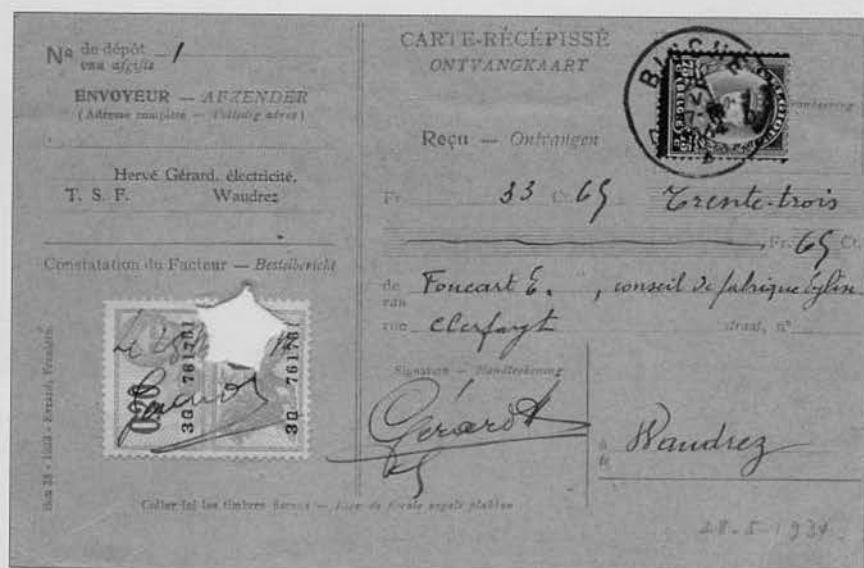 Nº de dépôt 1
van afgifte
ENVOYEUR — AFZENDER
(Adresse complète — Volledig adres)
Hervé Gérard, électricité,
T. S. F. Waudrez
Constatation du Facteur — Bestelbericht
0.20
3Q 761761
3Q 761761
Coller ici les timbres fiscaux — Hier de fiscale zegels plakken
CARTE-RÉCÉPISSÉ
ONTVANGKAART
Reçu — Ontvangen
Fr. 33 Ct. 65 Trente-trois
Fr. 65 Ct.
de Foucart E., conseil de fabrique Église
van
rue Clerfayt straat, nº
Signature — Handteekening
Gérard
à Waudrez
te
28-5-1934